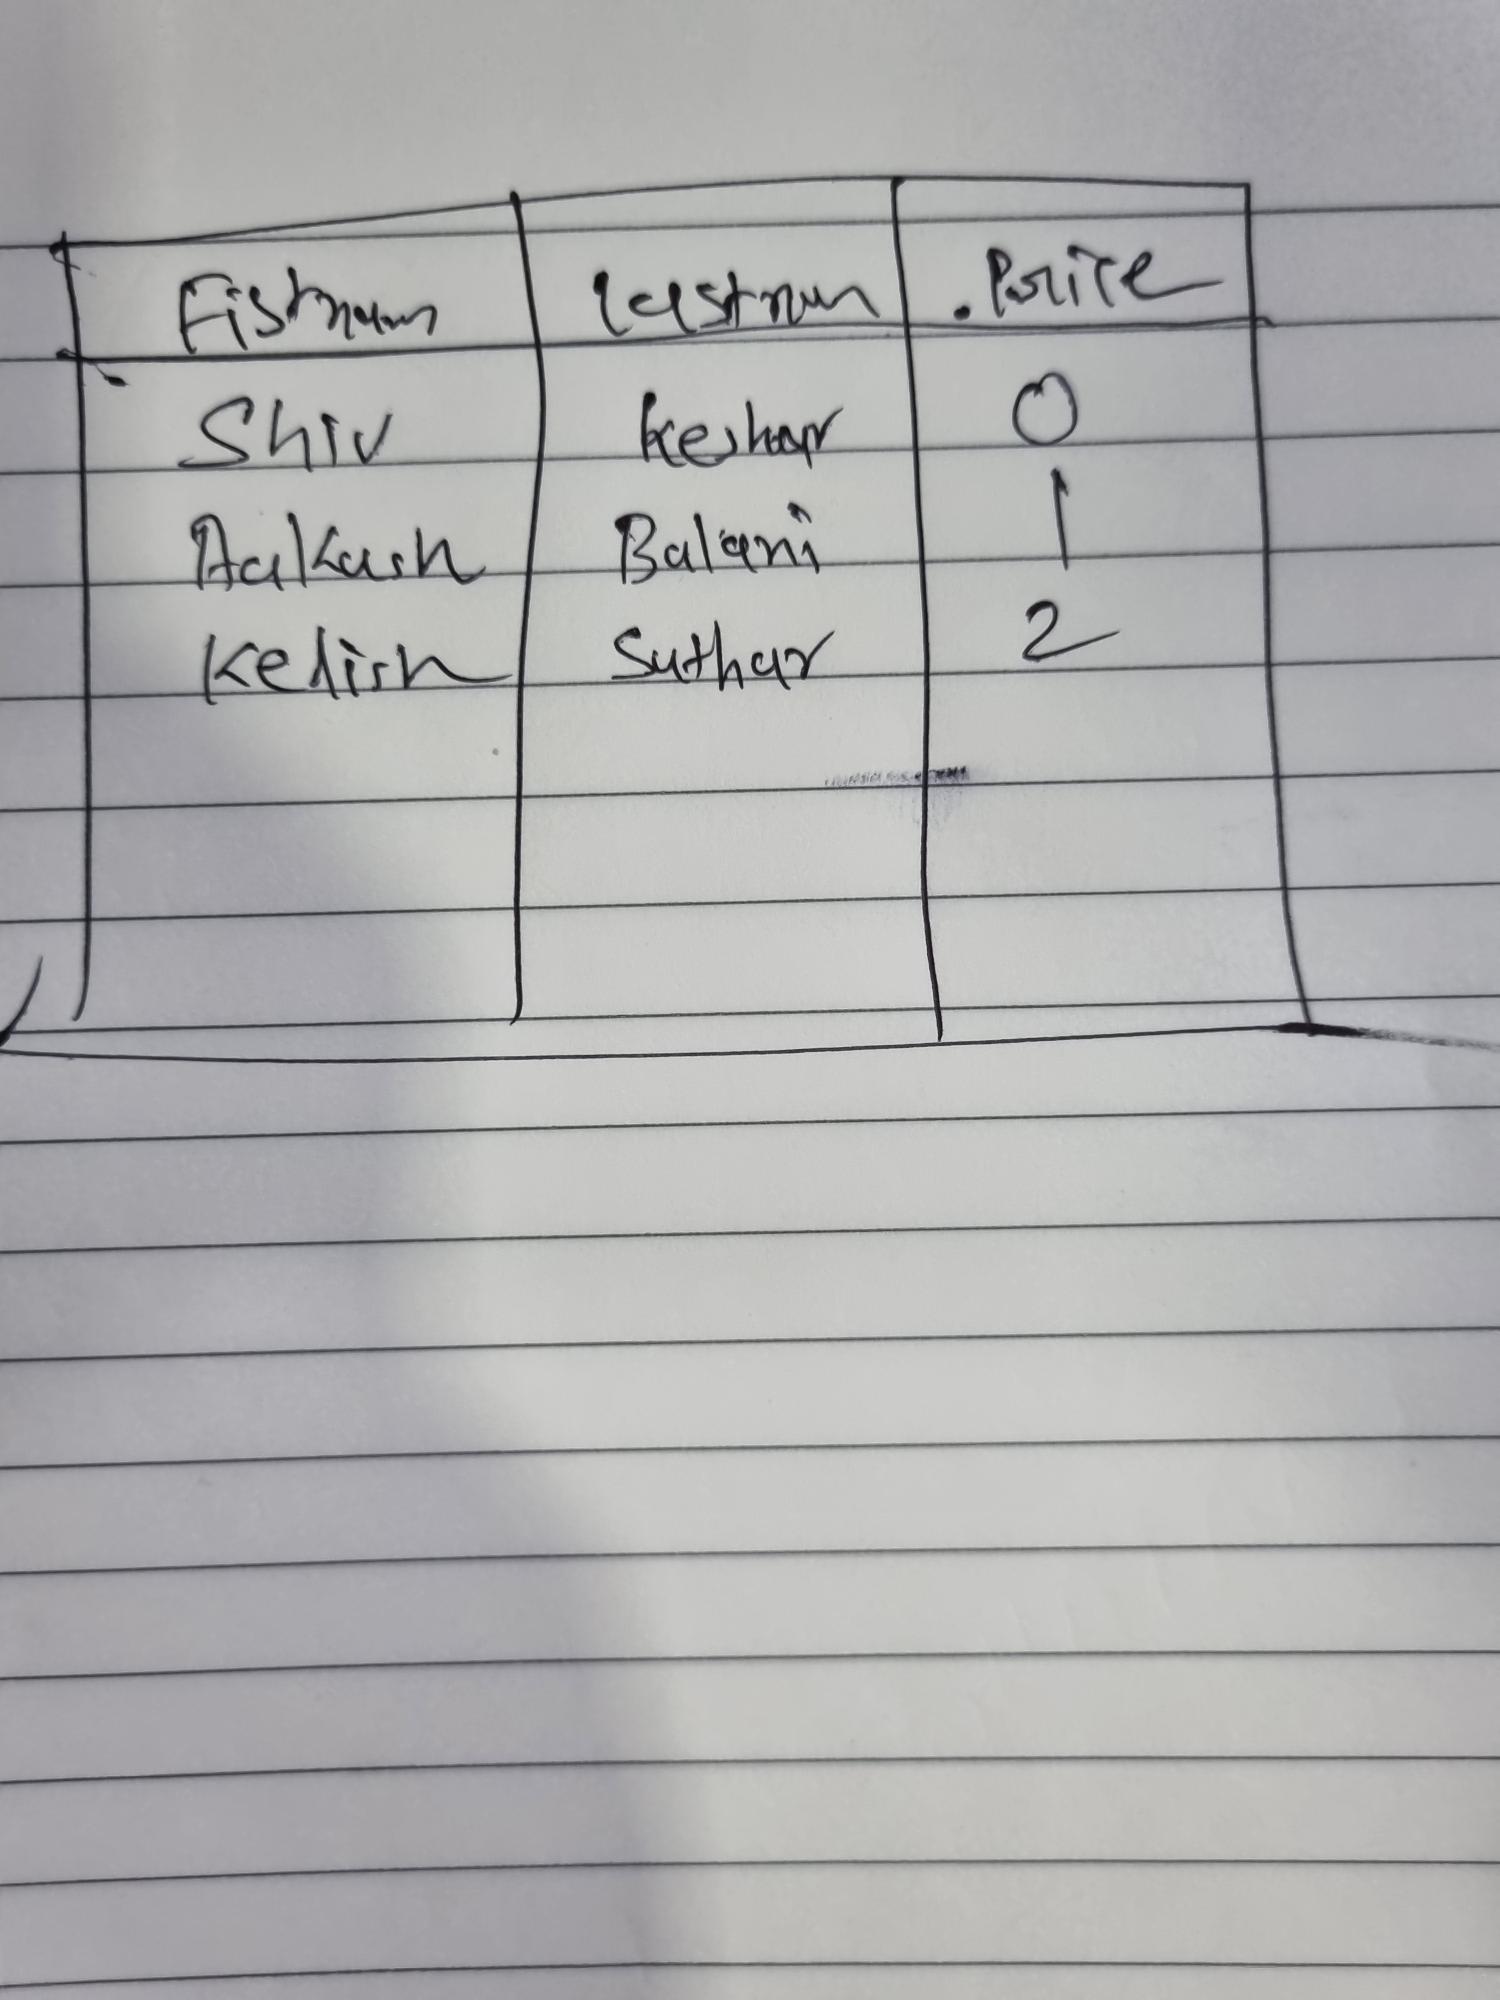 Fistnam lastnam Price
Shiv Keshar 0
Aakash Balani 1
Kelish Suthar 2